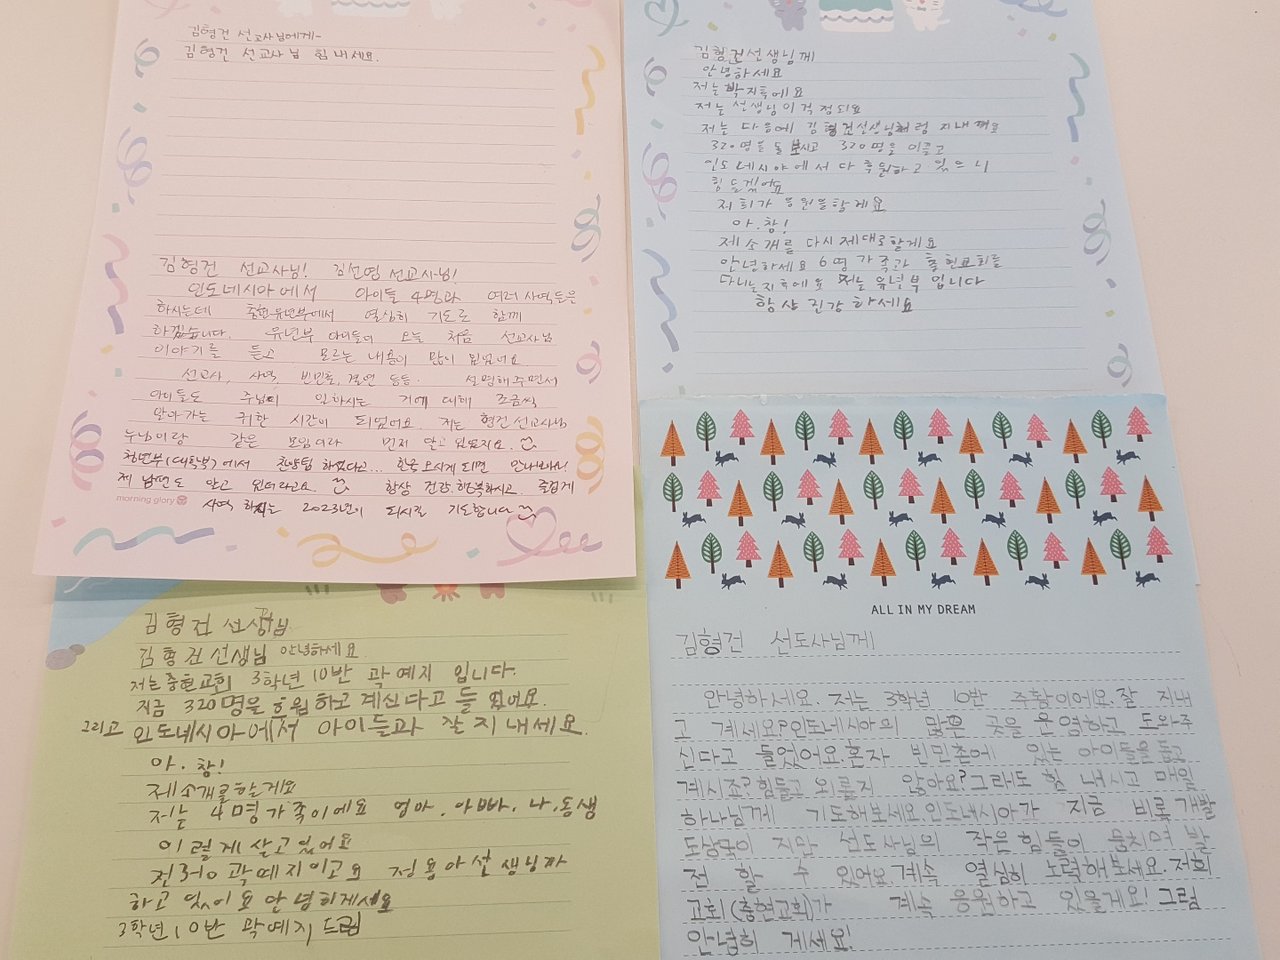 김형건 선교사님에게~
김형건 선교사님 힘내세요.
김형건 선교사님! 김선영 선교사님!
인도네시아에서 아이들 4명과 여러 사역들은
하시는데 충현유년부에서 열심히 기도로 함께
하겠습니다. 유년부 아이들이 오늘 처음 선교사님
이야기를 듣고 모르는 내용이 많이 있었어요.
선교사, 사역, 빈민촌, 결연 등등. 설명해주면서
아이들도 주님이 일하시는 거에 대해 조금씩
알아가는 귀한 시간이 되었어요. 저는 형건선교사님
누님이랑 같은 모임이라 먼저 알고 있었지요.
청년부(대학부)에서 찬양팀 하셨다고... 한국 오시게 되면 만나봐요
제 남편도 알고 있더라고요. 항상 건강. 행복하시고. 즐겁게
morning glory
사역 하시는 2023년이 되시길 기도합니다
김형건선생님께
안녕하세요
저는 박지후에요
저는 선생님이 걱정되요
저는 다음에 김형건선생님처럼 지내께요
320명을 돌보시고 320명을 이끌고
인도네시야에서 다 후원하고 있으니
힘들겠어요
저희가 응원을할게요
아.참!
제소개를 다시제대로할게요
안녕하세요 6명가족과 충현교회를
다니는지후에요 저는 유년부입니다
항상 진강하세요
김형건 선생님
김형건선생님 안녕하세요
저는충현교회 3학년10반 곽예지 입니다.
지금 320명을 후원하고 계신다고 들었어요.
그리고 인도네시아에서 아이들과 잘지내세요.
아.참!
제소개를할게요
저는 4명가족이에요 엄마.아빠.나.동생
이렇게살고있어요
전3하10곽예지이고요 정용아선생님까
하고있이요안녕히계세요
3학년10반 곽예지드림
ALL IN MY DREAM
김형건 선도사님께
안녕하세요. 저는 3학년 10반 주황이에요.잘 지내
고 계세요?인도네시아의 많은 곳을 운영하고 도와주
신다고 들었어요.혼자 빈민촌에 있는 아이들을돕고
계시죠?힘들고 외롭지 않아요?그래도 힘 내시고 매일
하나님께 기도해보세요.인도네시아가 지금 비록개발
도상국이 지만 선도사님의 작은힘들이 뭉치며 발
전 할 수 있어요.계속 열심히 노력해보세요.저희
교회(충현교회)가 계속 응원하고 있을게요! 그럼
안녕히 계세요!